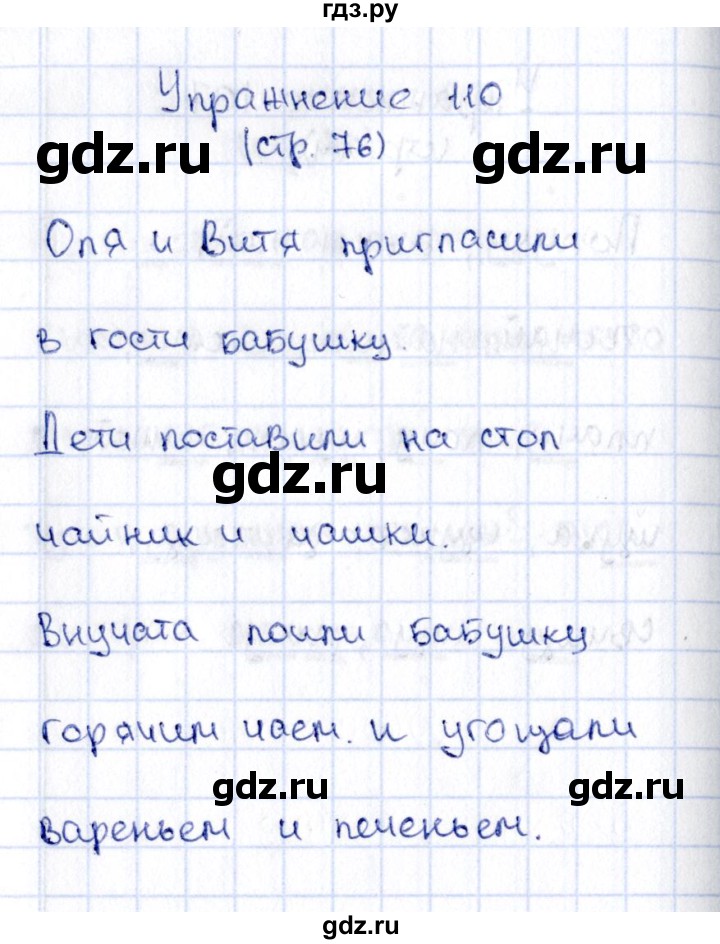 гдз.ру
Упражнение 110
gdz.ru gdz.ru
(стр. 76)
Оля и Витя пригласили
в гости бабушку.
Дети поставили на стол
gdz.ru
чайник и чашки.
Внучата поили бабушку
горячим чаем. и угощали
gdz.ru gdz.ru
вареньем и печеньем.
gdz.ru